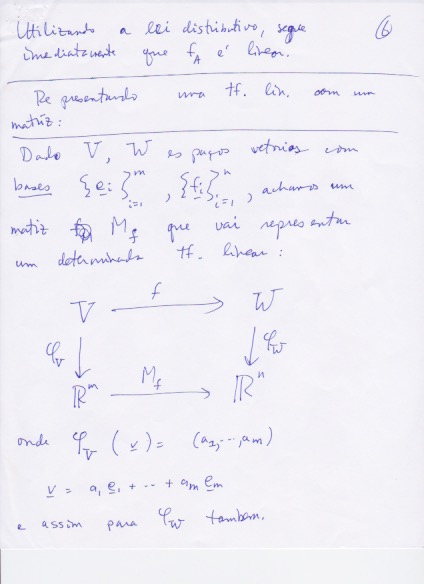 Utilizando a lei distributivo, segue ⑥
imediatamente que f_A é linear.
Representando uma tf. lin. com um
matriz:
Dado V, W espaços vetoriais com
bases {e_i}_{i=1}^m, {f_i}_{i=1}^n, achamos um
matiz M_f que vai representar
um determinada tf. linear:
V f W
φ_V φ_W
ℝ^m M_f ℝ^n
onde φ_V (v) = (a_1, ..., a_m)
v = a_1 e_1 + ... + a_m e_m
e assim para φ_W tambem.